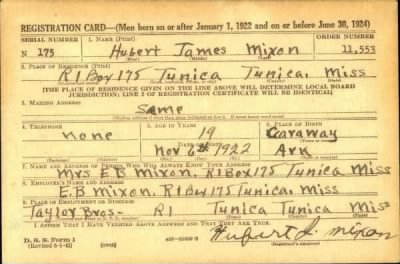 REGISTRATION CARD—(Men born on or after January 1, 1922 and on or before June 30, 1924)
SERIAL NUMBER 1. NAME (Print) ORDER NUMBER
N 175 Hubert James Mixon 11,553
(First) (Middle) (Last)
2. PLACE OF RESIDENCE (Print)
R1 Box 175 Tunica Tunica, Miss
[THE PLACE OF RESIDENCE GIVEN ON THE LINE ABOVE WILL DETERMINE LOCAL BOARD
JURISDICTION; LINE 2 OF REGISTRATION CERTIFICATE WILL BE IDENTICAL]
3. MAILING ADDRESS
Same
4. TELEPHONE 5. AGE IN YEARS 6. PLACE OF BIRTH
none 19 Caraway
DATE OF BIRTH
Nov 6th 1922 Ark
7. NAME AND ADDRESS OF PERSON WHO WILL ALWAYS KNOW YOUR ADDRESS
Mrs E B Mixon, R1 Box 175 Tunica Miss
8. EMPLOYER'S NAME AND ADDRESS
E. B Mixon, R1 Box 175 Tunica, Miss
9. PLACE OF EMPLOYMENT OR BUSINESS
Taylor Bros- R1 Tunica Tunica Miss
I AFFIRM THAT I HAVE VERIFIED ABOVE ANSWERS AND THAT THEY ARE TRUE.
D. S. S. Form 1
(Revised 6-9-41) (over) Hubert J. Mixon
(Registrant's signature)